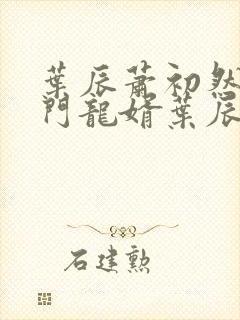 葉辰蕭初然
門龍婿葉辰
石建勲